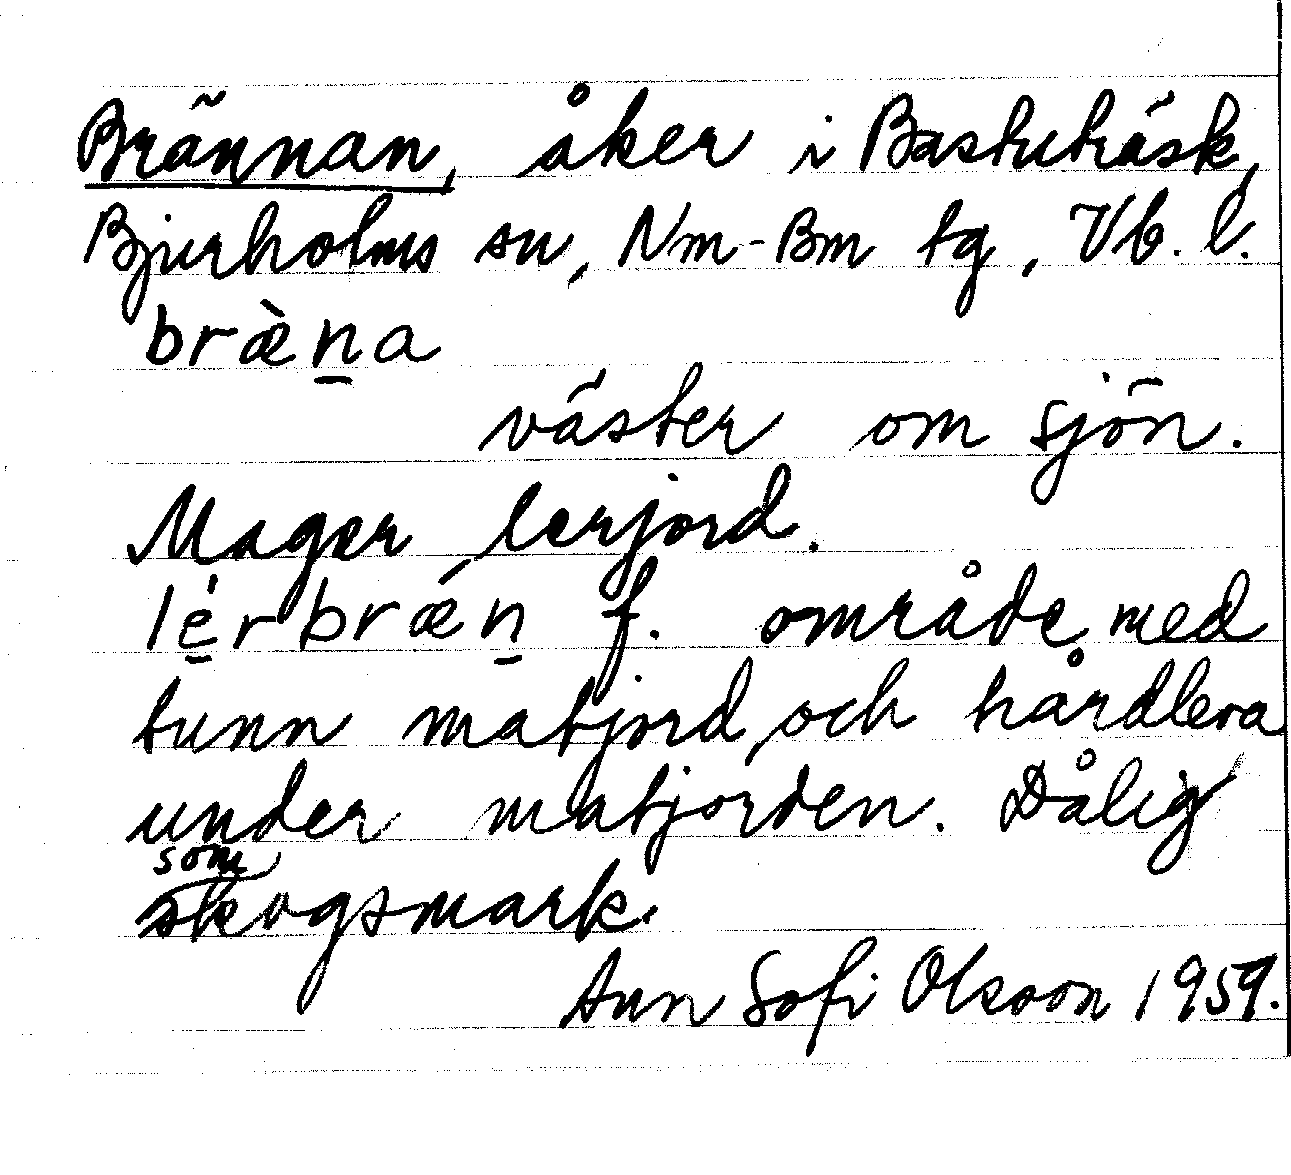 Brännan, åker i Bastuträsk,
Bjurholms sn, Nm-Bm tg, Vb. l.
bræ̀n̠a
väster om sjön.
Mager lerjord.
lé̠rbrǽn̠ f. område med
tunn matjord och hårdlera
under matjorden. Dålig
som
skogsmark.
Ann Sofi Olsson 1959.